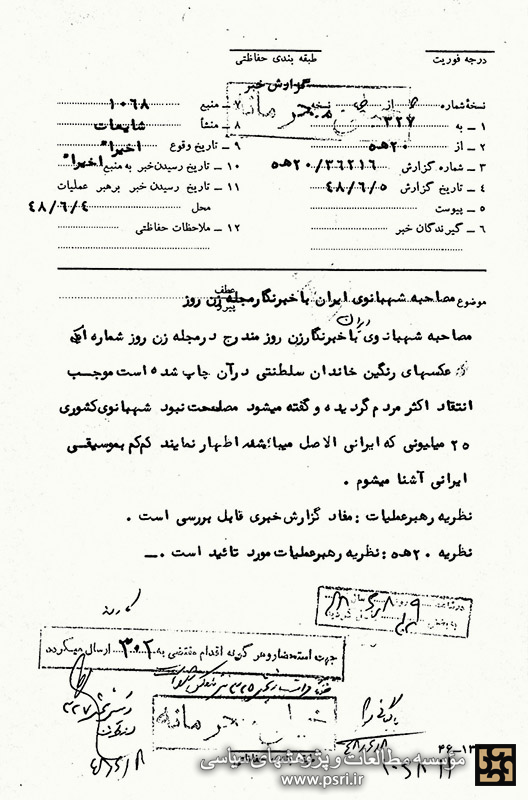 درجه فوریت
طبقه بندی حفاظتی
گزارش خبر
نسخهٔ شماره از نسخه
خیلی محرمانه
۱ ـ به ۳۲۷
۲ ـ از ۲۰هـ۵
۳ ـ شماره گزارش ۲۰/۳۶۲۱۶هـ۵
۴ ـ تاریخ گزارش ۴۸/۶/۵
۵ ـ پیوست
۶ ـ گیرندگان خبر
۷ ـ منبع ۱۰۶۸
۸ ـ منشأ شایعات
۹ ـ تاریخ وقوع اخیراً
۱۰ ـ تاریخ رسیدن خبر به منبع اخیراً
۱۱ ـ تاریخ رسیدن خبر برهبر عملیات
محل ۴۸/۶/۴
۱۲ ـ ملاحظات حفاظتی
موضوع مصاحبه شهبانوی ایران با خبرنگار مجله زن روز
عطف
پیرو
مصاحبه شهبانوی ایران با خبرنگار زن روز مندرج در مجله زن روز شماره ای که
عکسهای رنگین خاندان سلطنتی در آن چاپ شده است موجب
انتقاد اکثر مردم گردیده و گفته میشود مصلحت نبود شهبانوی کشوری
۲۵ میلیونی که ایرانی الاصل میباشد اظهار نمایند کم کم بموسیقی
ایرانی آشنا میشوم .
نظریه رهبر عملیات : مفاد گزارش خبری قابل بررسی است .
نظریه ۲۰هـ۵ : نظریه رهبر عملیات مورد تائید است . ـ
جهت استحضار و هر گونه اقدام مقتضی به ۳۰۲ ارسال میگردد
خیلی محرمانه
بایگانی شود
۴۸/۶/۸
۳۲۷
۴۸/۶/۸
۴۶-۱۳
مؤسسه مطالعات و پژوهشهای سیاسی
www.psri.ir